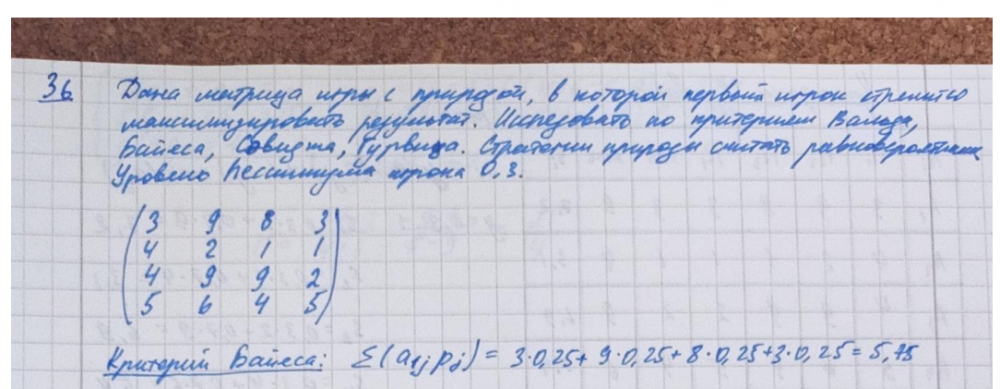 36 Дана матрица игры с природой, в которой первый игрок стремится
максимизировать результат. Исследовать по критериям Вальда,
Байеса, Сэвиджа, Гурвица. Стратегии природы считать равновероятными
Уровень пессимизма игрока 0,3.
3 9 8 3
4 2 1 1
4 9 9 2
5 6 4 5
Критерий Байеса: Σ(a₁ⱼ pⱼ) = 3·0,25 + 9·0,25 + 8·0,25 + 3·0,25 = 5,75